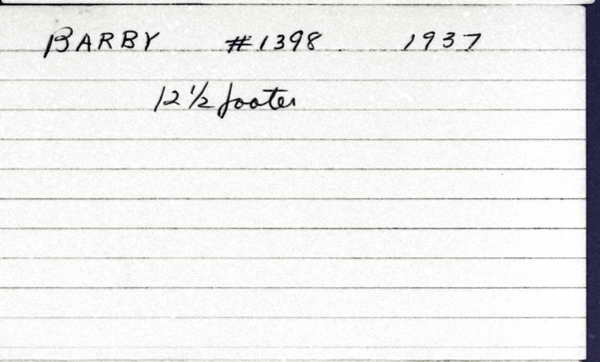 BARBY #1398. 1937
12 1/2 footer